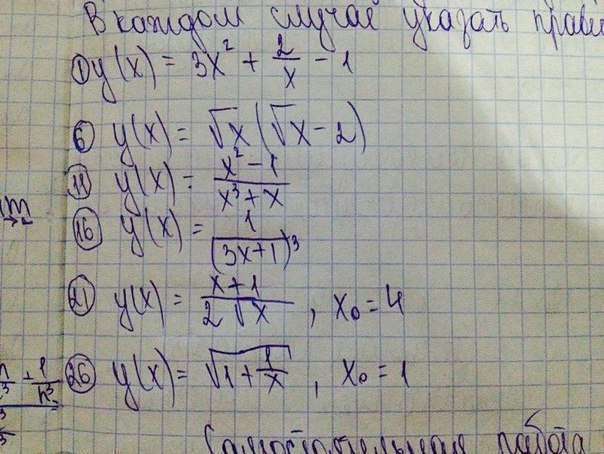 В каждом случае указать
① y(x) = 3x² + 2/x - 1
⑥ y(x) = √x (√x - 2)
⑪ y(x) = (x² - 1)/(x³ + x)
⑯ y(x) = 1/(3x+1)³
㉑ y(x) = (x+1)/(2√x), x₀ = 4
㉖ y(x) = √(1 + 1/x), x₀ = 1
Самостоятельная работа